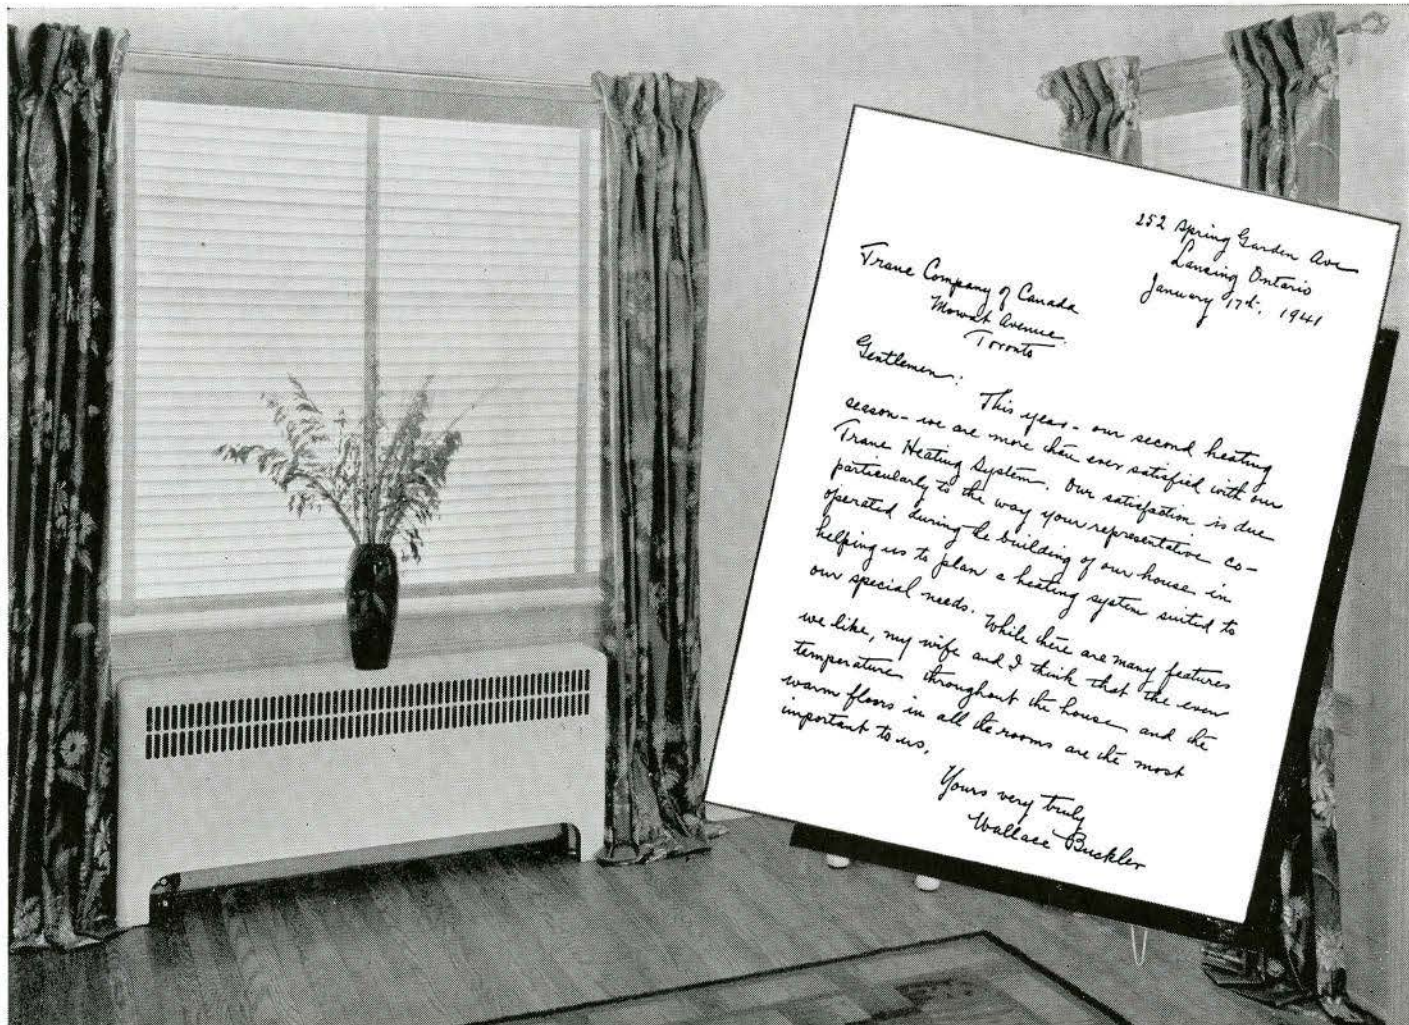 252 Spring Garden Ave
Lansing Ontario
January 17th, 1941
Trane Company of Canada
Mowat Avenue.
Toronto
Gentlemen:
This year - our second heating
season - we are more than ever satisfied with our
Trane Heating System. Our satisfaction is due
particularly to the way your representative co-
operated during the building of our house in
helping us to plan a heating system suited to
our special needs. While there are many features
we like, my wife and I think that the even
temperature throughout the house and the
warm floors in all the rooms are the most
important to us.
Yours very truly
Wallace Buckler